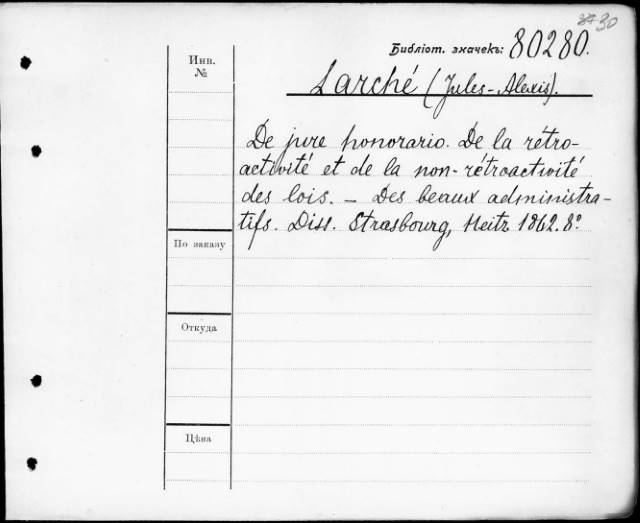 30
Библіот. значекъ: 80280.
Инв.
№
Larché (Jules-Alexis).
De jure honorario. De la rétro-
activité et de la non-rétroactivité
des lois. – Des beaux administra-
tifs. Diss. Strasbourg, Heitz 1862. 8°
По заказу
Откуда
Цѣна